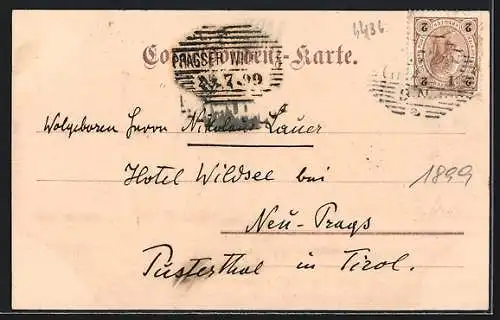 6436
Correspondenz-Karte.
PRAGSER WILD
23.7.99
2 2
Wolgeboren Herrn Nikolaus Lauer
Hotel Wildsee bei
1899
Neu-Prags
Pusterthal in Tirol.